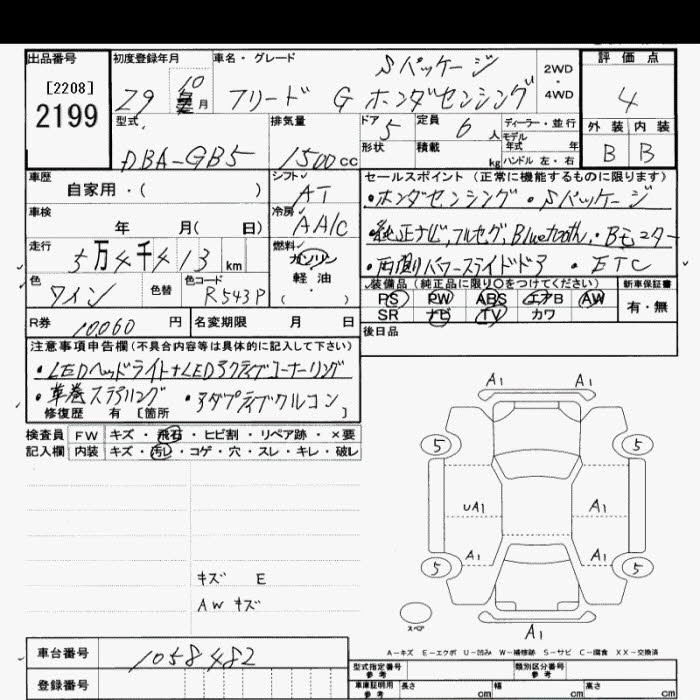 出品番号
[2208]
2199
初度登録年月
29 10 月
車名・グレード
Sパッケージ
フリード G ホンダセンシング
2WD
・
4WD
評価点
4
外装 内装
B B
型式
DBA-GB5
排気量
1500cc
ドア
5
定員
6人
ディーラー・並行
モデル
年式 年
形状
積載
kg
ハンドル 左・右
車歴
自家用・( )
シフト
AT
車検
年 月( 日)
冷房
AAC
走行
5万4千413km
燃料
ガソリン
軽油
( )
色
ワイン
色替
色コード
R543P
R券
10060円
名変期限 月 日
セールスポイント(正常に機能するものに限ります)
・ホンダセンシング ・Sパッケージ
・純正ナビ,フルセグ,Bluetooth, ・Bモニター
・両側パワースライドドア ・ETC
装備品(純正品に限り○をつけてください)
新車保証書
PS PW ABS エアB AW
SR ナビ TV カワ
有・無
後日品
注意事項申告欄(不具合内容等は具体的に記入して下さい)
・LEDヘッドライト+LEDアクティブコーナーリング
・革巻ステアリング ・アダプティブクルコン
修復歴 有[箇所 ]
検査員 FW キズ・飛石・ヒビ割・リペア跡・×要
記入欄 内装 キズ・汚レ・コゲ・穴・スレ・キレ・破レ
キズ E
AW キズ
A1 A1
5 5
UA1 A1
A1 A1
5 5
スペア
A1
A-キズ E-エクボ U-凹み W-補修跡 S-サビ C-腐食 XX-交換済
車台番号
1058482
登録番号
型式指定番号
参考
類別区分番号
参考
車庫証明用
参考
長さ cm
幅 cm
高さ cm